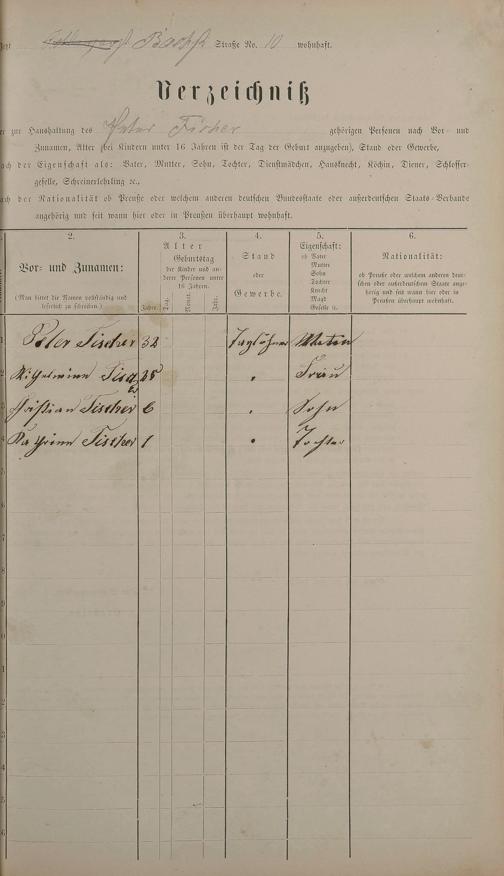 Bach Straße No. 10 wohnhaft.
Verzeichniß
er zur Haushaltung des Peter Fischer gehörigen Personen nach Vor- und
Zunamen, Alter (bei Kindern unter 16 Jahren ist der Tag der Geburt anzugeben), Stand oder Gewerbe,
nach der Eigenschaft als: Vater, Mutter, Sohn, Tochter, Dienstmädchen, Hausknecht, Köchin, Diener, Schlosser-
geselle, Schreinerlehrling ꝛc.,
nach der Nationalität ob Preuße oder welchem anderen deutschen Bundesstaate oder außerdeutschen Staats-Verbande
angehörig und seit wann hier oder in Preußen überhaupt wohnhaft.
2. 3. 4. 5. 6.
Vor- und Zunamen:
(Man bittet die Namen vollständig und
leserlich zu schreiben.)
Alter
Geburtstag
der Kinder und an-
derer Personen unter
16 Jahren.
Jahre. Tag. Monat. Jahr.
Stand
oder
Gewerbe.
Eigenschaft:
ob Vater
Mutter
Sohn
Tochter
Knecht
Magd
Geselle u.
Nationalität:
ob Preuße oder welchem anderen deut-
schen oder außerdeutschen Staate ange-
hörig und seit wann hier oder in
Preußen überhaupt wohnhaft.
1 Peter Fischer 32 Taglöhner
2 Wilhelmine Fischer 25 " Frau
3 Christian Fischer 6 " Sohn
4 Kathrine Fischer 1 " Tochter
5
6
7
8
9
0
1
2
3
4
5
6